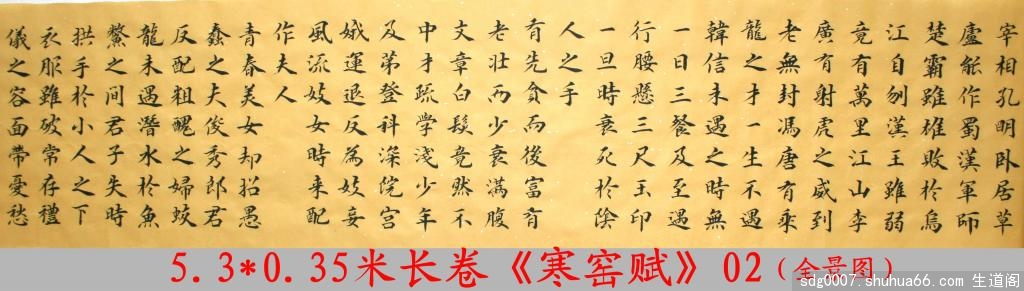 宰相孔明卧居草
廬能作蜀漢軍師
楚霸雖雄敗於烏
江自刎漢王雖弱
竟有萬里江山李
廣有射虎之威到
老無封馮唐有乘
龍之才一生不遇
韓信未遇之時無
一日三餐及至遇
行腰懸三尺玉印
一旦時衰死於陰
人之手
有先貧而後富有
老壯而少衰滿腹
文章白髮竟然不
中才疏學淺少年
及第登科深院宮
娥運退反為妓妾
風流妓女時来配
作夫人
青春美女却招愚
蠢之夫俊秀郎君
反配粗醜之婦蛟
龍未遇潛水於魚
鱉之間君子失時
拱手於小人之下
衣服雖破常存禮
儀之容面帶憂愁
5.3*0.35米长卷《寒窑赋》02(全景图)
sdg0007.shuhua66.com 生道阁